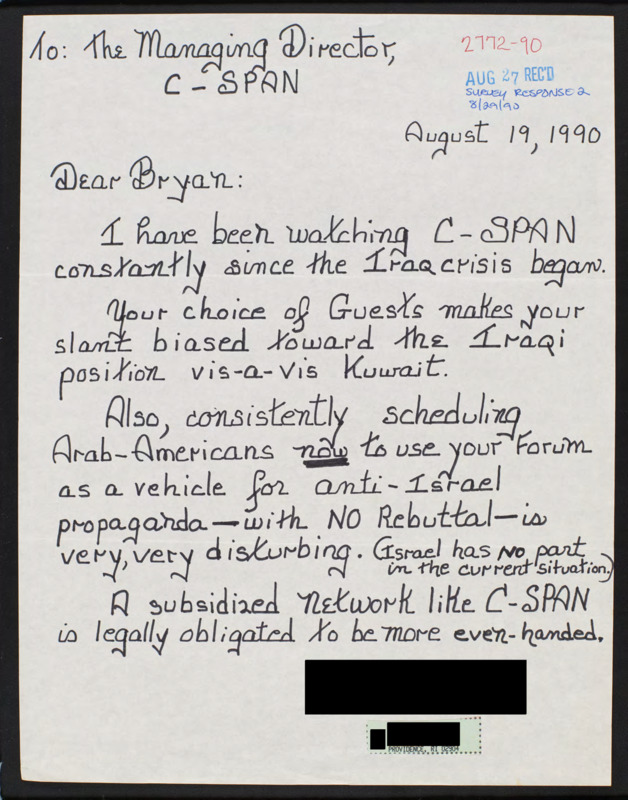 To: The Managing Director,
C-SPAN
2772-90
AUG 27 REC'D
SURVEY RESPONSE 2
8/29/90
August 19, 1990
Dear Bryan:
I have been watching C-SPAN
constantly since the Iraq crisis began.
Your choice of Guests makes your
slant biased toward the Iraqi
position vis-a-vis Kuwait.
Also, consistently scheduling
Arab-Americans now to use your Forum
as a vehicle for anti-Israel
propaganda—with NO Rebuttal—is
very, very disturbing. (Israel has NO part
in the current situation.)
A subsidized network like C-SPAN
is legally obligated to be more even-handed.
PROVIDENCE, RI